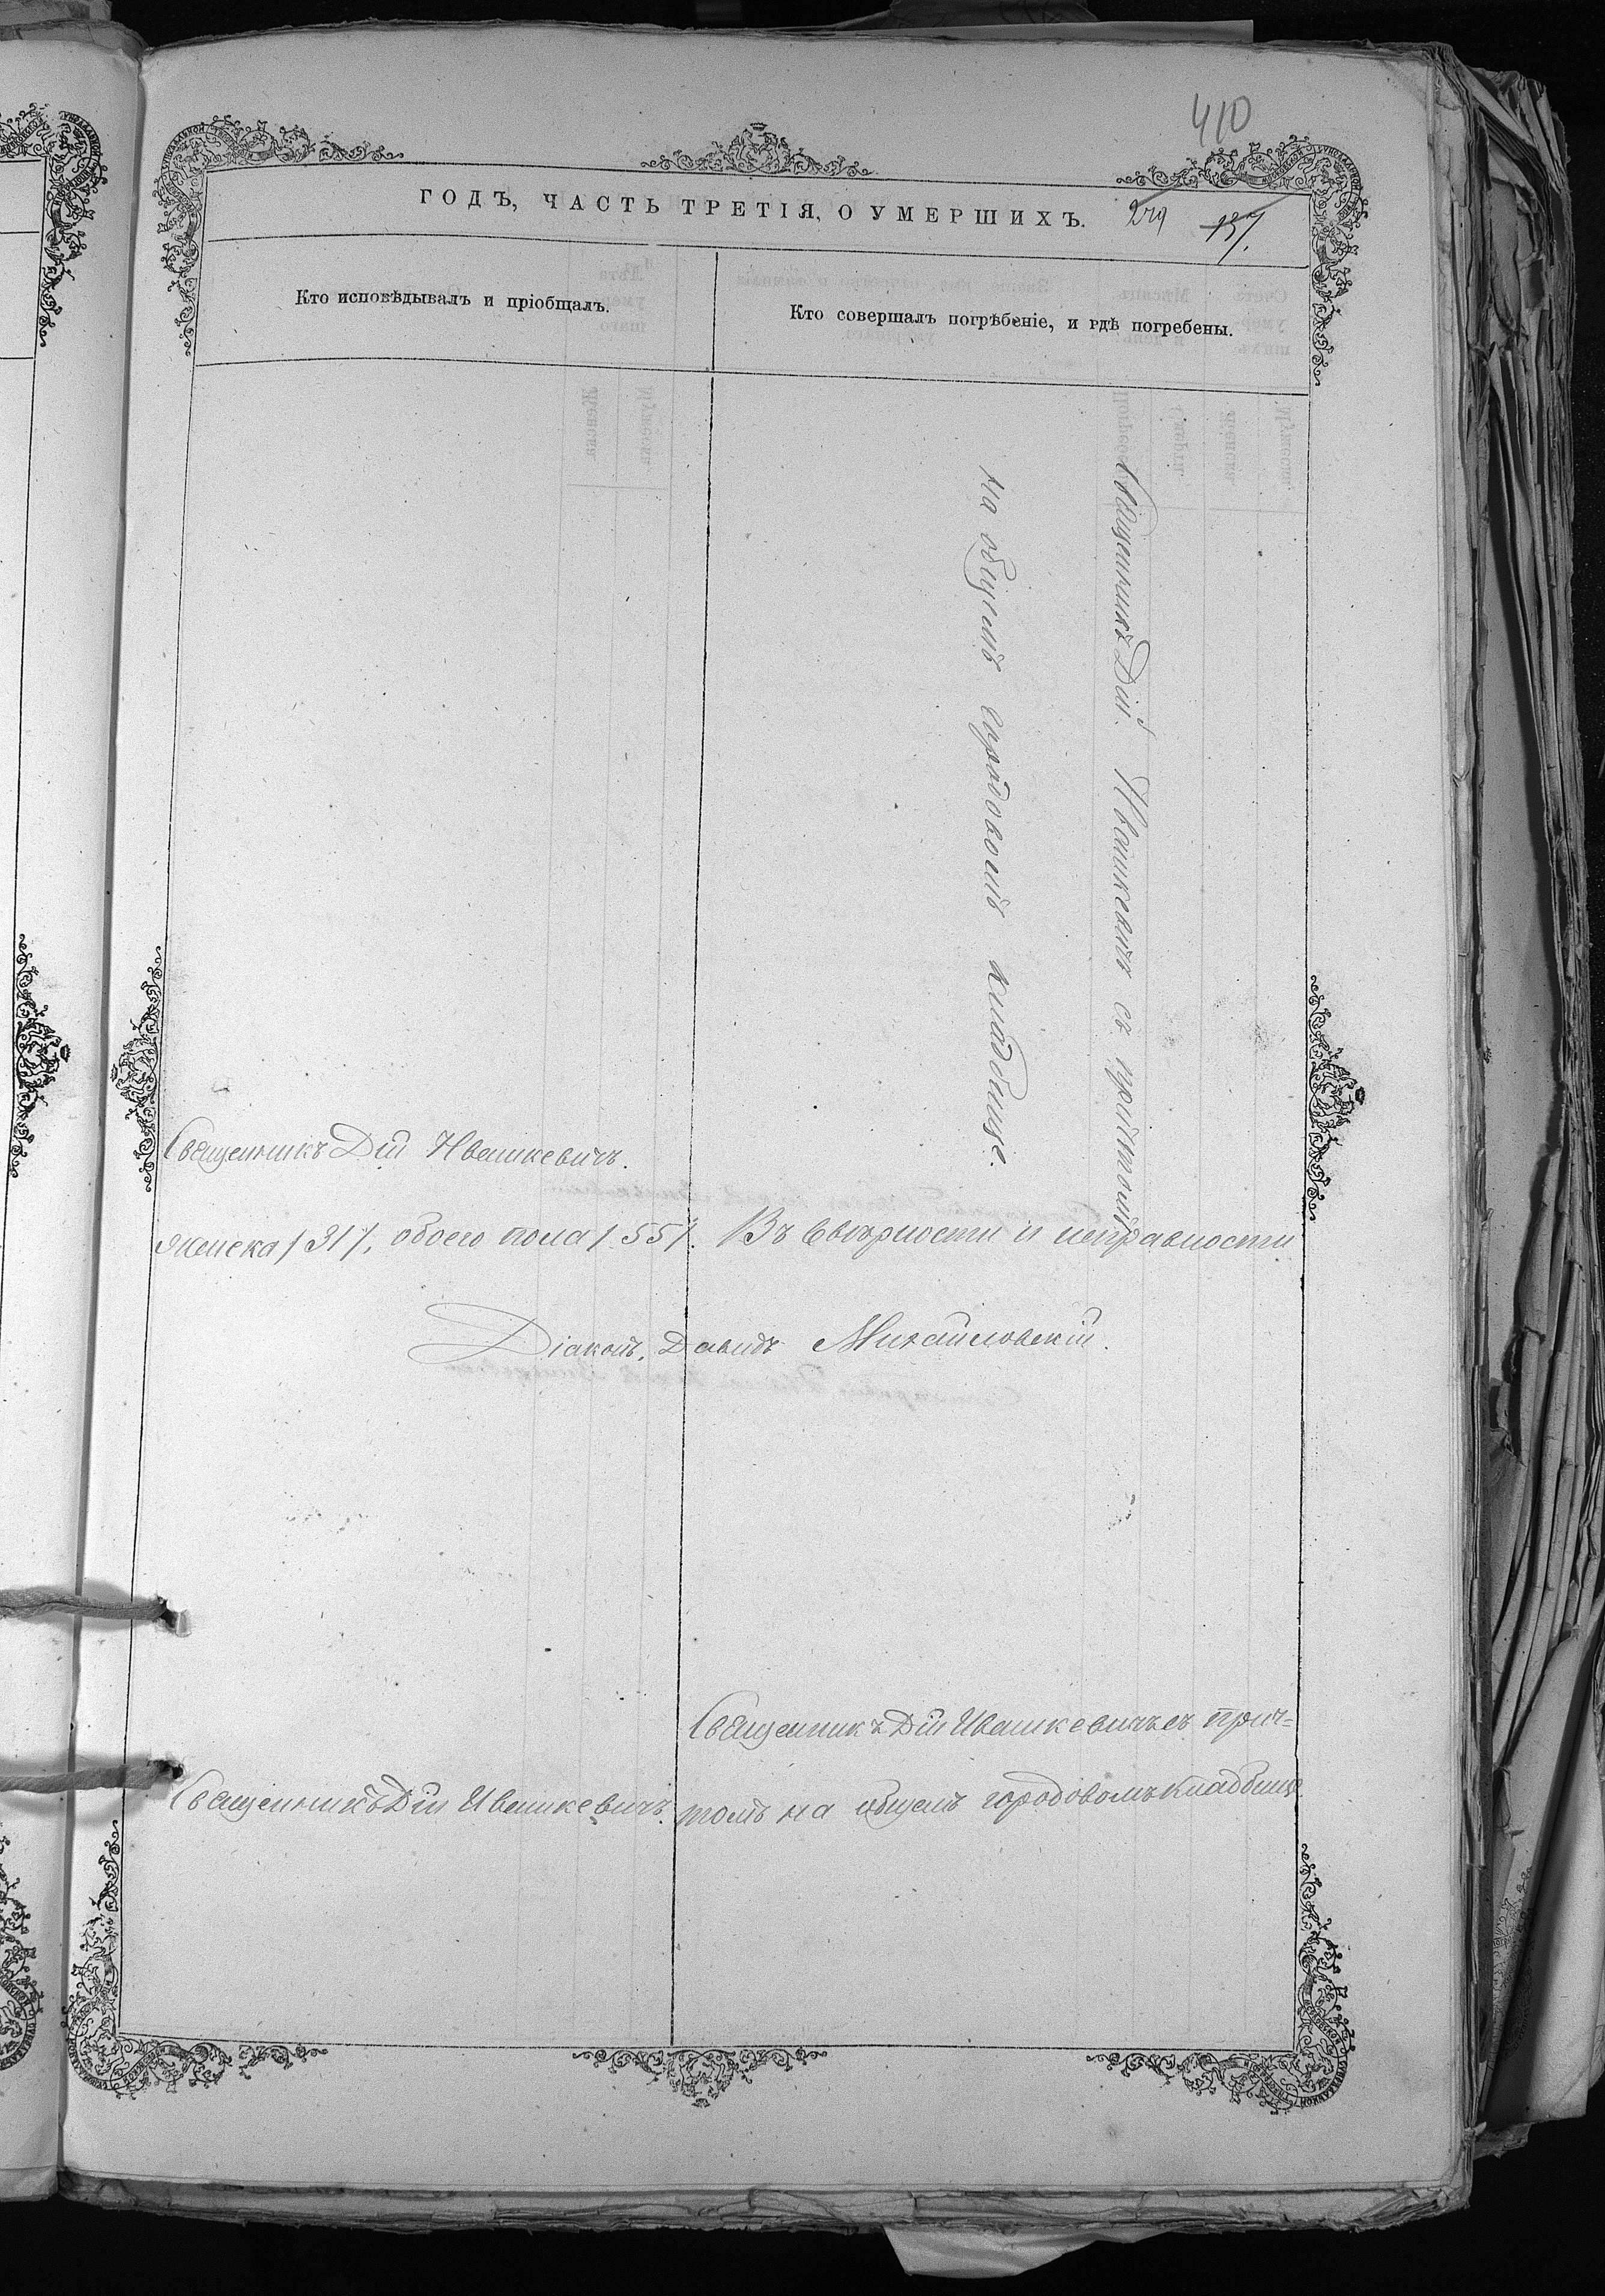 410
ГОДЪ, ЧАСТЬ ТРЕТІЯ, О УМЕРШИХЪ.
279 137.
Кто исповѣдывалъ и пріобщалъ.
Кто совершалъ погрѣбеніе, и гдѣ погребены.
Священникъ Дій Ивашкевичъ съ причтомъ
на общемъ городовомъ кладбище.
Священникъ Дій Ивашкевичъ.
женска /31/, обоего пола /55/. Въ вѣрности и исправности
Діаконъ, Давидъ Михайловскій.
Священникъ Дій Ивашкевичъ съ прич=
Священникъ Дій Ивашкевичъ.
томъ на общемъ городовомъ кладбище